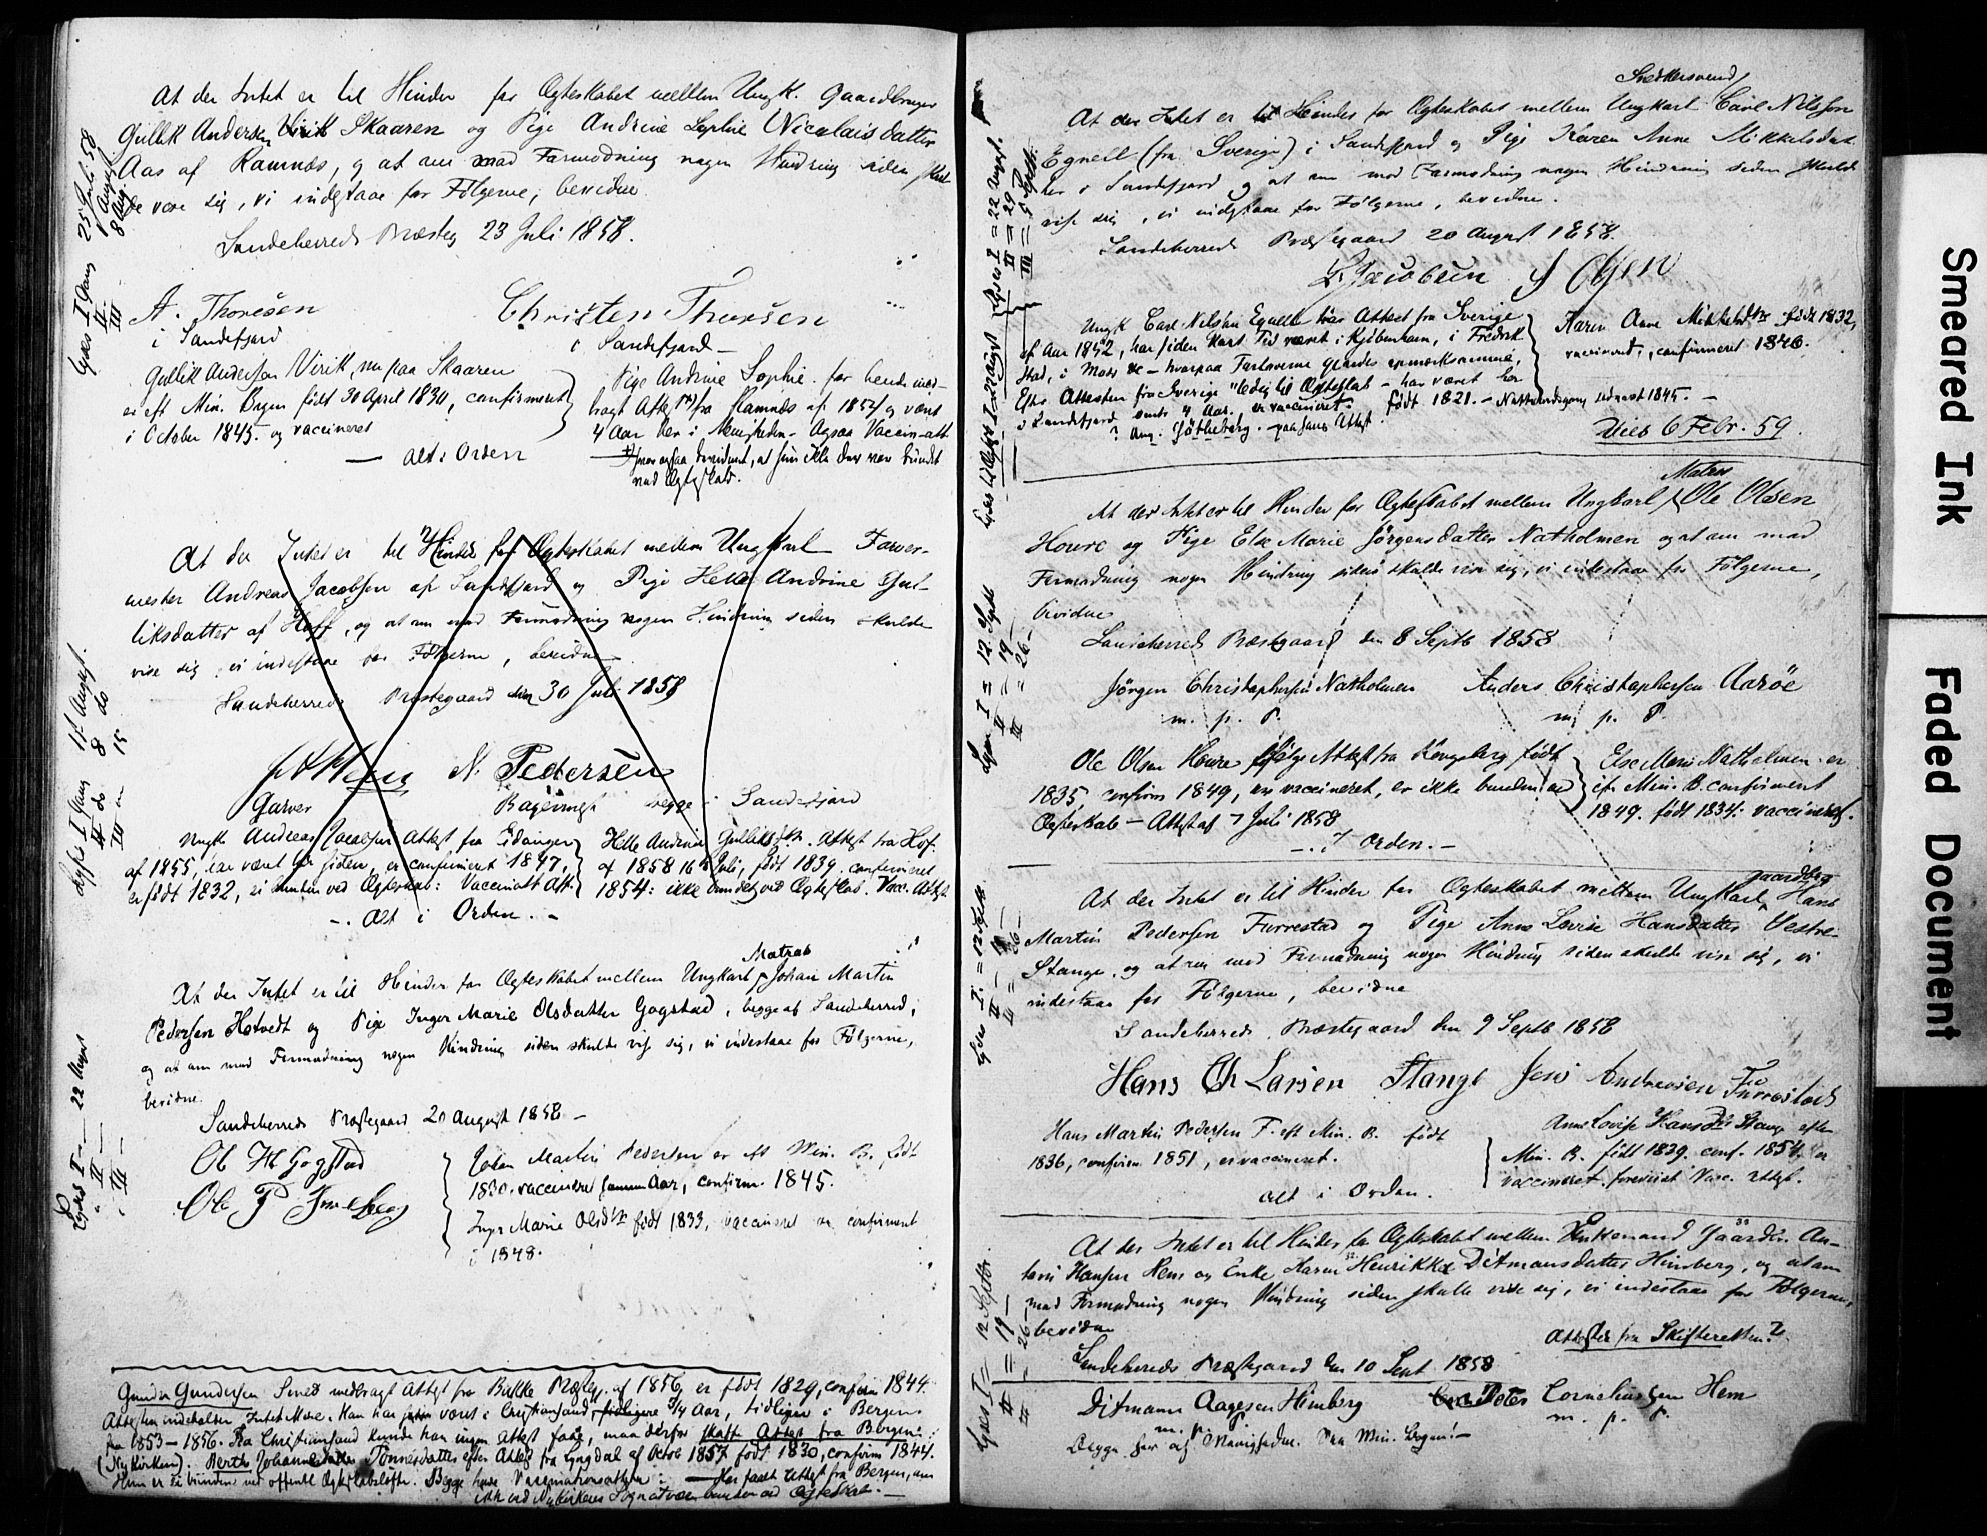 At der Intet er til Hinder for Ægteskabet mellem Ungk. Gaardbruger
Gullik Andersen Virik Skaaren og Pige Andrine Sophie Nicolaisdatter
Aas af Ramnæs, og at om mod Formodning nogen Hindring siden skul
de vise sig, vi indestaae for Følgerne, bevidne
Sandeherreds Præsteg 23 Juli 1858.
A. Thoresen Christen Thorsen
i Sandefjord i Sandefjord —
Gullik Andersen Virik, nu paa Skaaren
er eft Min. Bogen født 30 April 1830, confirmeret
i October 1845. og vaccineret
— Alt i Orden
Pige Andrine Sophie. har hende ind-
bragt Attest fra Ramnæs af 1854 og været
4 Aar her i Menigheden — Ogsaa Vaccin-att.
at hun ikke der var bundet
ved Ægteskab.
Lyses I Gang 25 Juli 58
II — 1 August
III — 8 Aug.
At der Intet er til Hinder for Ægteskabet mellem Ungkarl Farver-
mester Andreas Jacobsen af Sandefjord og Pige Helle Andrine Gul-
liksdatter af Hoff, og at om mod Formodning nogen Hindring siden skulde
vise sig, vi indestaae for Følgerne, bevidne
Sandeherreds Præstegaard den 30 Juli 1858
N. Pedersen
Garver begge i Sandefjord
Ungk. Andreas Jacobsen Attest fra Eidanger
af 1855, har været her siden, er confirmeret 1847,
er født 1832, ei bunden ved Ægteskab: Vaccinatt Att.
Helle Andrine Gulliksdtr. Attest fra Hof.
af 1858 16 Juli, født 1839. confirmeret
1854: ikke bundet ved Ægteskab. Vac. Attest
—. Alt i Orden. —
Lyses I Gang 1st August.
II do 8 do
III 15
Matros
At der Intet er til Hinder for Ægteskabet mellem Ungkarl Johan Martin
Pedersen Hotvedt og Pige Inger Marie Olsdatter Gogstad, begge af Sandeherred,
og at om mod Formodning nogen Hindring siden skulde vise sig, vi indestaae for Følgerne,
bevidne.
Sandeherreds Præstegaard 20 August 1858 —
Ole H Gogstad
Ole P
Johan Martin Pedersen er eft Min. B. født
1830. vaccineret samme Aar, confirm. 1845.
Inger Marie Olsdtr født 1833, vaccineret og confirmeret
i 1848.
Lyses I — 22 August
II —
III —
Gunder Gundersen Smed medbragt Attest fra Bakke Præsteg. af 1856, er født 1829, confirm 1844.
Attesten indeholder Intet Mere. Han har været i Christiansand, tidligere 3/4 Aar, tidligere i Bergen
fra 1853 — 1856. Fra Christiansand kunde han ingen Attest faae, maa derfor skaffe Attest fra Bergen.
(Nykirken). Berthe Johanne Tønnesdatter efter Attest fra Lyngdal af Octob 1857 født 1830, confirm 1844.
Hun er ei bunden ved offentl Ægteskabsløfte. Begge have Vaccinationsattester: — Har faaet Attest fra Bergen, om
ikke ved Nykirkens Sogn at være bunden ved Ægteskab. —
Snedkersvend
At der Intet er til Hinder for Ægteskabet mellem Ungkarl Carl Nilsson
Egnell (fra Sverige) i Sandefjord og Pige Karen Anne Mikkelsdat
ter i Sandefjord og at om mod Formodning nogen Hindring siden skulde
vise sig, vi indestaae for Følgerne, bevidne.
Sandeherreds Præstegaard 20 August 1858.
L. Jacobsen
Ungk Carl Nilsson Egnell har Attest fra Sverige
af Aar 1852, har siden kort Tid været i Kjøbenhavn, i Fredrik
stad, i Moss &c — hvorpaa Forloverne gjordes opmærksomme,
Efter Attesten fra Sverige "ledig til Ægteskab — har været her
i Sandefjord omtr 4 Aar. er vaccineret. født 1821. — Nattverdsgang sidst 1845. —
? Ang. Götheborg. paa hans Attest.
Karen Anne Mikkelsdtr født 1832,
vaccineret, confirmeret 1846.
Viet 6 Febr. 59.
Lyses I = 22 August.
II = 29
III = 5 Septb.
Matros
At der Intet er til Hinder for Ægteskabet mellem Ungkarl Ole Olsen
Houre og Pige Else Marie Jørgensdatter Natholmen og at om mod
Formodning nogen Hindring siden skulde vise sig, vi indestaae for Følgerne,
bevidne
Sandeherreds Præstegaard den 8 Septb 1858
Jørgen Christophersen Natholmen Anders Christophersen Aarøe
m. p. P. m. p. P.
Ole Olsen Houre ifølge Attest fra Kongsberg født
1835, confirm 1849, er vaccineret, er ikke bunden ved
Ægteskab — Attest af 7 Juli 1858
Else Marie Natholmen er
eft Min. B. confirmeret
1849. født 1834: vaccineret.
—. i Orden. —
Lyses I = 12 Septb
II = 19 —
III = 26 —
Gaardbrg
At der Intet er til Hinder for Ægteskabet mellem Ungkarl Hans
Martin Pedersen Furrestad og Pige Anne Lovise Hansdatter Vestre-
Stange, og at om mod Formodning nogen Hindring siden skulde vise sig, vi
indestaae for Følgerne, bevidne
Sandeherreds Præstegaard den 9 Septb 1858
Hans Ch Larsen Stange Jens Andreasen Furrestad
Hans Martin Pedersen F. eft Min. B. født
1836, confirm 1851, er vaccineret.
Anne Lovise Hansdtr Stange efter
Min. B. født 1839. conf. 1854. er
vaccineret. forevist Vacc. attest.
Alt i Orden.
Lyses I = 12 Septb
II — 19 —
III = 26 —
At der Intet er til Hinder for Ægteskabet mellem Enkemand Gaardbr. An-
ton Hansen Hem og Enke Maren Henrikke Ditmansdatter Himberg, og at om
mod Formodning nogen Hindring siden skulde vise sig, vi indestaae for Følgerne,
bevidne
Attester fra Skifteretten?
Sandeherreds Præstegaard den 10 Sept 1858
Ditmann Aagesen Himberg Peter Corneliussen Hem
m. p. P. m. p. P.
Begge her af Menigheden. Paa Min. Bogen! —
Lyses I = 12 Septbr.
II = 19 —
III — 26 —
Smeared Ink
Faded Document